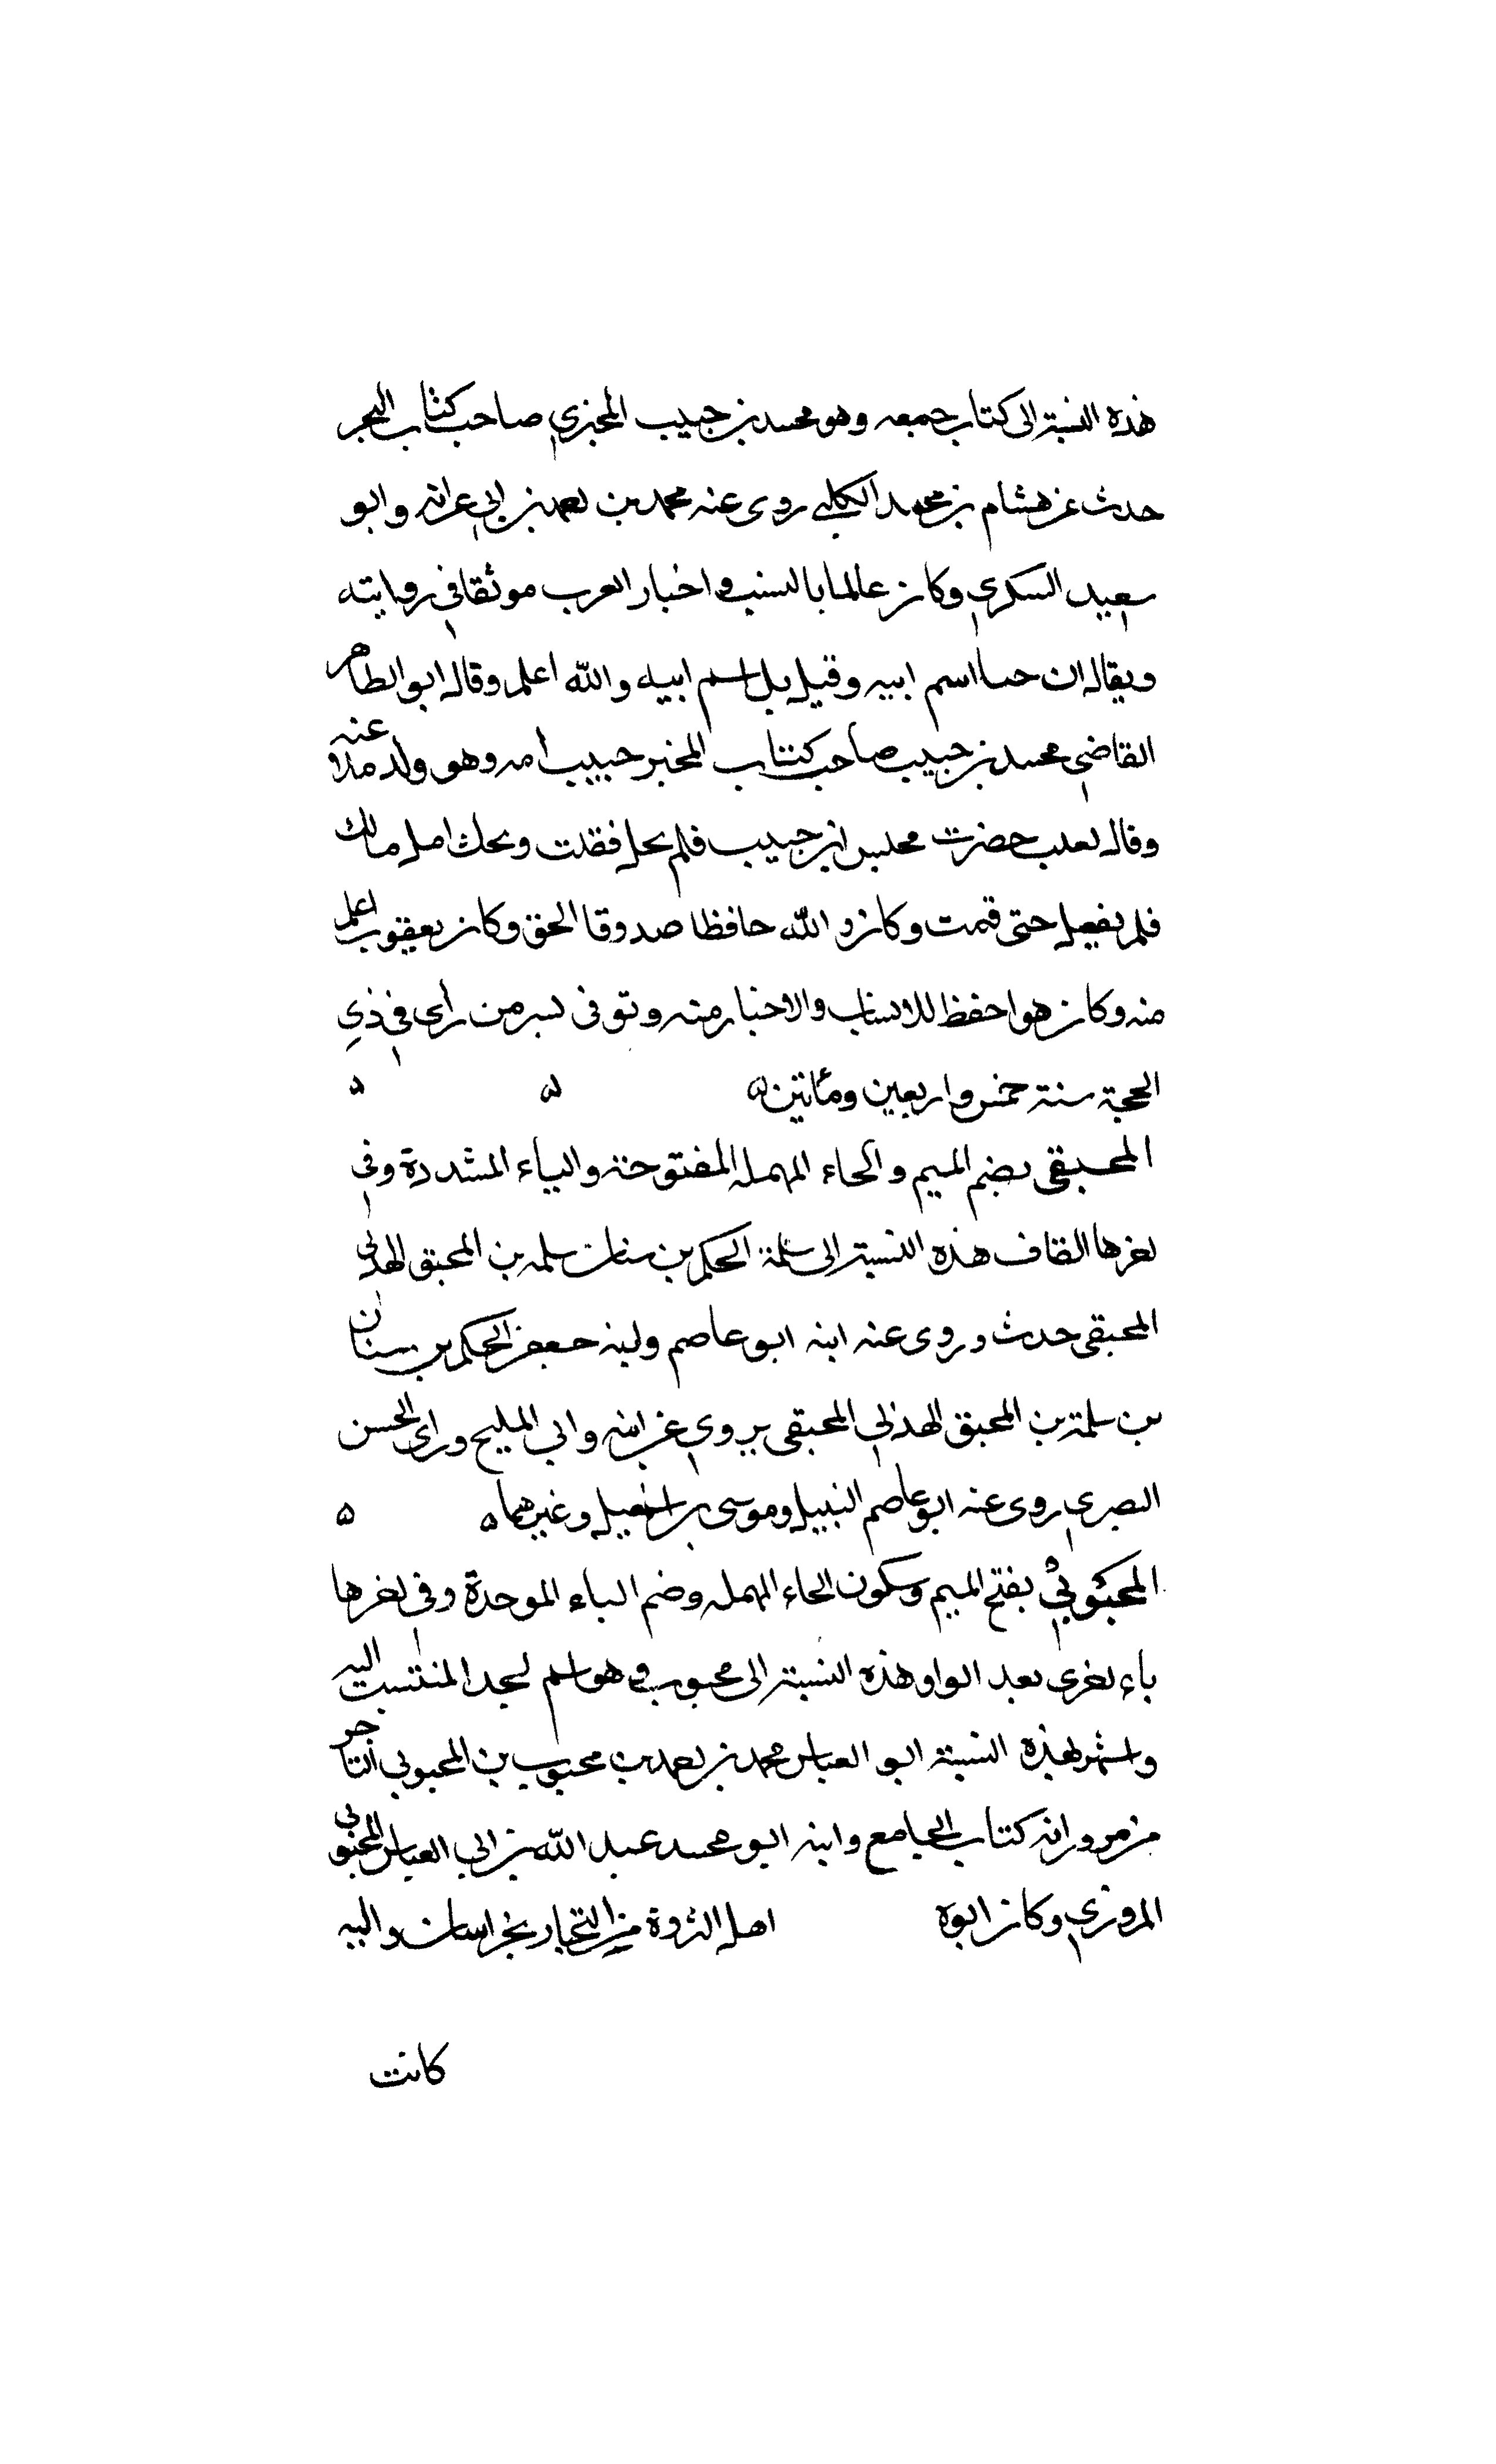 هذه النسبة الى كتاب جمعه وهو محمد بن حبيب المحبري صاحب كتاب المحبر
حدث عن هشام بن محمد الكلبي روى عنه محمد بن احمد بن ابي عرابة وابو
سعيد السكري وكان عالما بالنسب واخبار العرب موثقا في روايته
ويقال ان حبيبا اسم ابيه وقيل بل اسم ابيه والله اعلم وقال ابو الطاهر
القاضي محمد بن حبيب صاحب كتاب المخبر حبيب امه وهو ولد ملاعنه
وقال ثعلب حضرت مجلس ابن حبيب فلم يمل فقلت ويحك امل مالك
فلم يفعل حتى قمت وكان والله حافظا صدوقا الحق وكان يعقوب اعلم
منه وكان هو احفظ للانساب والاخبار منه وتوفى بسر من رأى في ذي
الحجة سنة خمس واربعين ومائتين ه ه ه
المحبقي بضم الميم والحاء المهمله المفتوحة والباء المشددة وفي
اخرها القاف هذه النسبة الى سلمة الحكم بن سنان سلمه بن المحبق الهذلي
المحبقي حدث وروى عنه ابنه ابو عاصم وابنه جعفر الحكم بن سنان
بن سلمة بن المحبق الهذلي المحبقي يروي عن ابيه وابي المليح وراى الحسن
البصري روى عنه ابو عاصم النبيل وموسى بن اسمعيل وغيرهما ه ه
المحبوبي بفتح الميم وسكون الحاء المهمله وضم الباء الموحدة وفي اخرها
باء اخرى بعد الواو هذه النسبة الى محبوب وهو اسم لجد المنتسب اليه
واشتهر بهذه النسبة ابو العباس محمد بن احمد بن محبوب بن المحبوبي التاجر
من مرو راوية كتاب الجامع وابنه ابو محمد عبد الله بن ابي العباس المحبوبي
المروزي وكان ابوه اهل الثروة من التجار بخراسان واليه
كانت